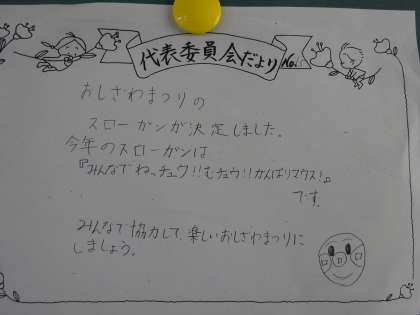 代表委員会だより No.
おしざわまつりの
スローガンが決定しました。
今年のスローガンは
『みんなでね、チュウ!!むチュウ!!がんばりマウス!』
です。
みんなで協力して、楽しいおしざわまつりに
しましょう。